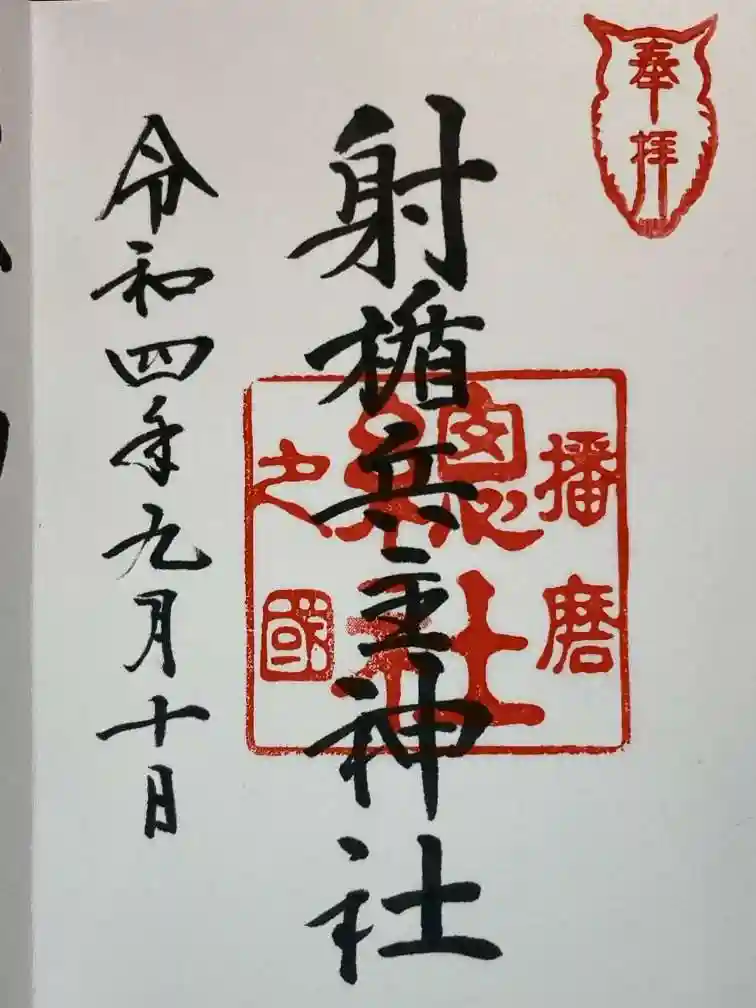 奉拝
射楯兵主神社
播磨
總社
之國
令和四年九月十日